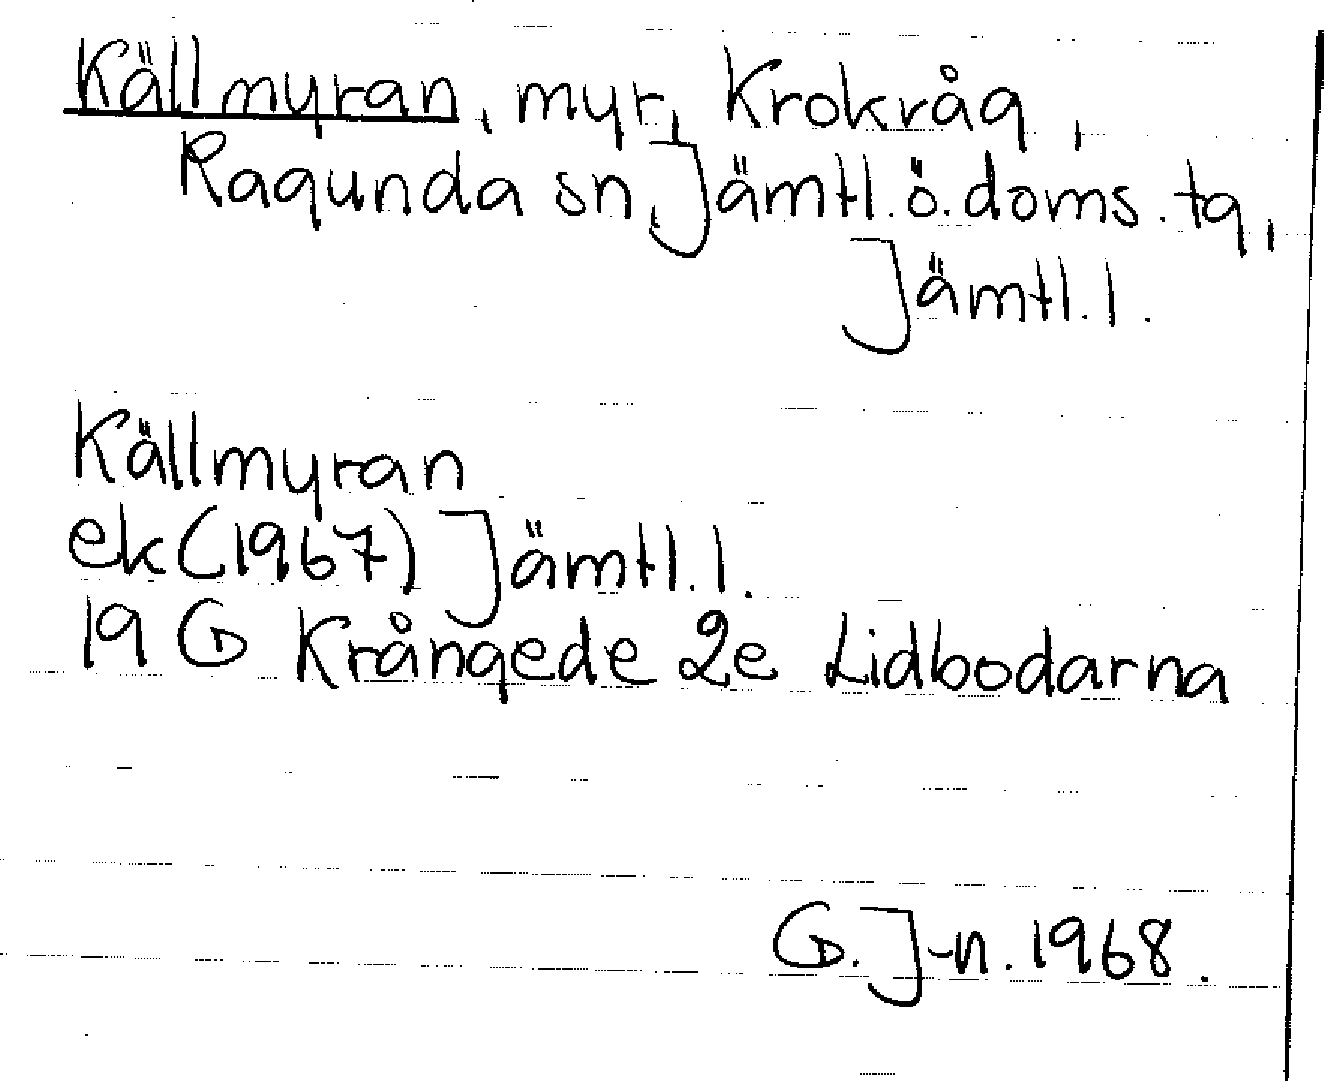 Källmyran, myr, Krokråg,
Ragunda sn, Jämtl. ö. doms. tg,
Jämtl. l.
Källmyran
ek (1967) Jämtl. l.
19 G Krångede 2e Lidbodarna
G. J-n. 1968.